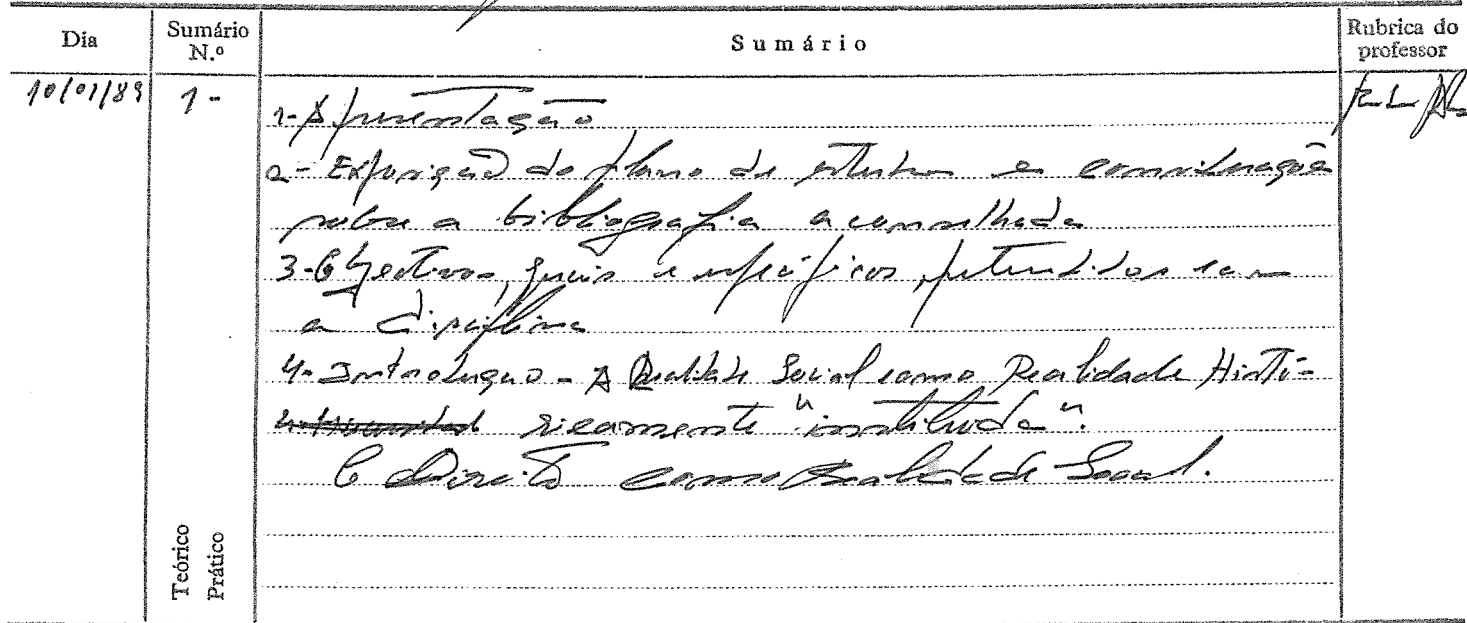 Dia
Sumário N.º
Sumário
Rubrica do professor
10/01/89
1 -
1- Apresentação
2- Exposição do plano de estudos e considerações
sobre a bibliografia aconselhada
3- Objectivos, gerais e específicos, pretendidos com
a disciplina
4- Introdução - A Realidade Social como Realidade Histó-
ricamente "instituída".
O Direito como Realidade Social.
Teórico
Prático